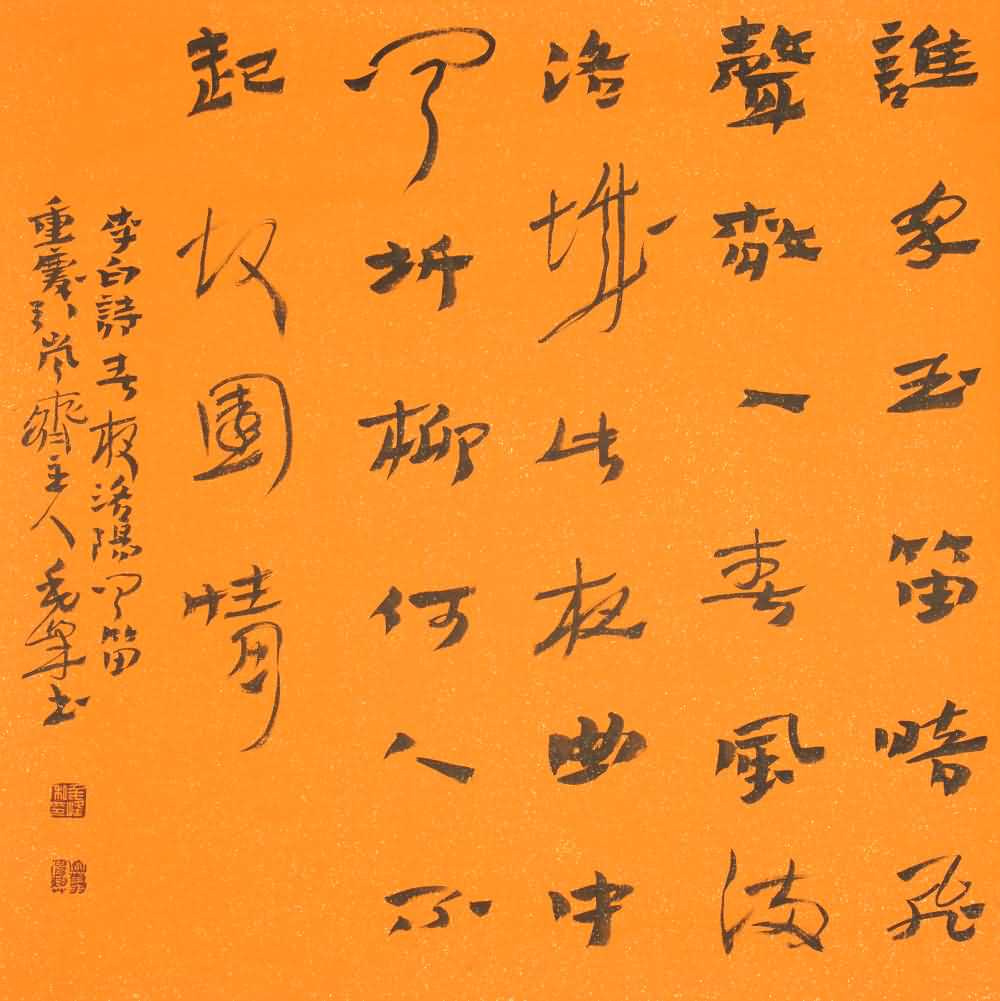 誰家玉笛暗飛
聲散入春風滿
洛城此夜曲中
聞折柳何人不
起故園情
李白詩春夜洛陽聞笛
重慶齋主人书